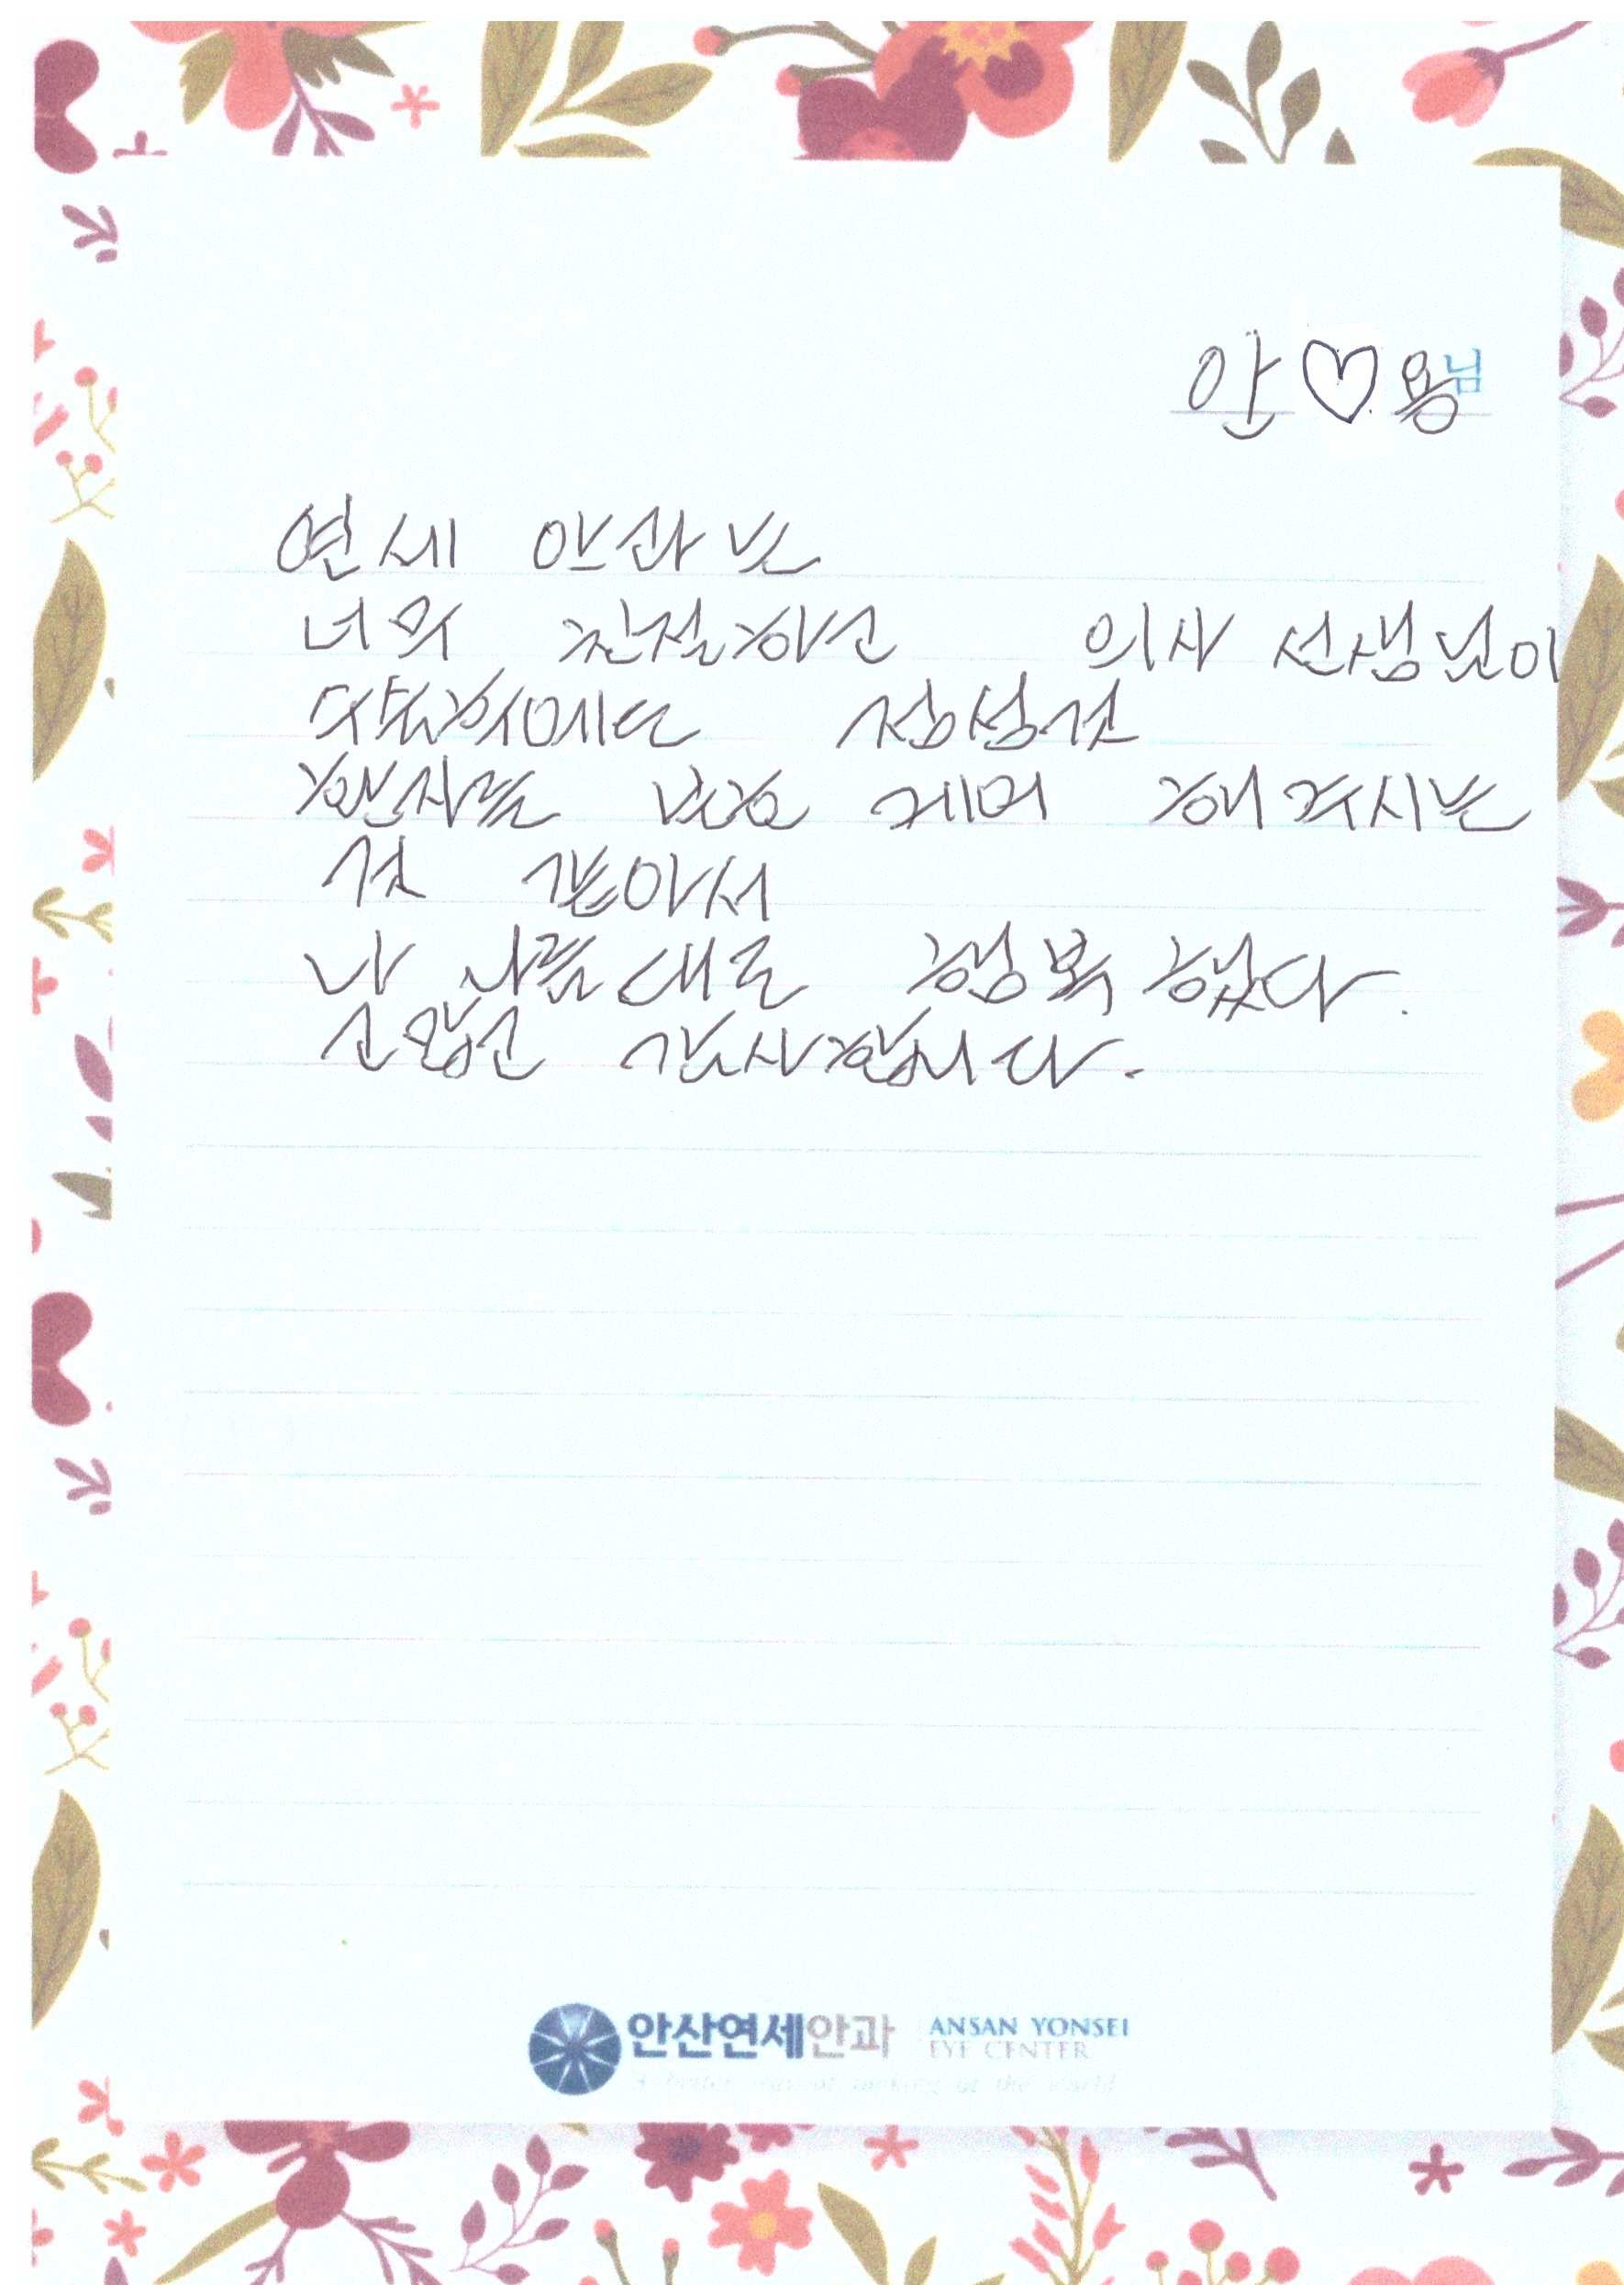 안♡용님
연세 안과는
너무 친절하신 의사 선생님이
정성껏
환자를 해주시는
것 같아서
나 나름대로 행복했다.
감사합니다.
안산연세안과 ANSAN YONSEI
EYE CENTER